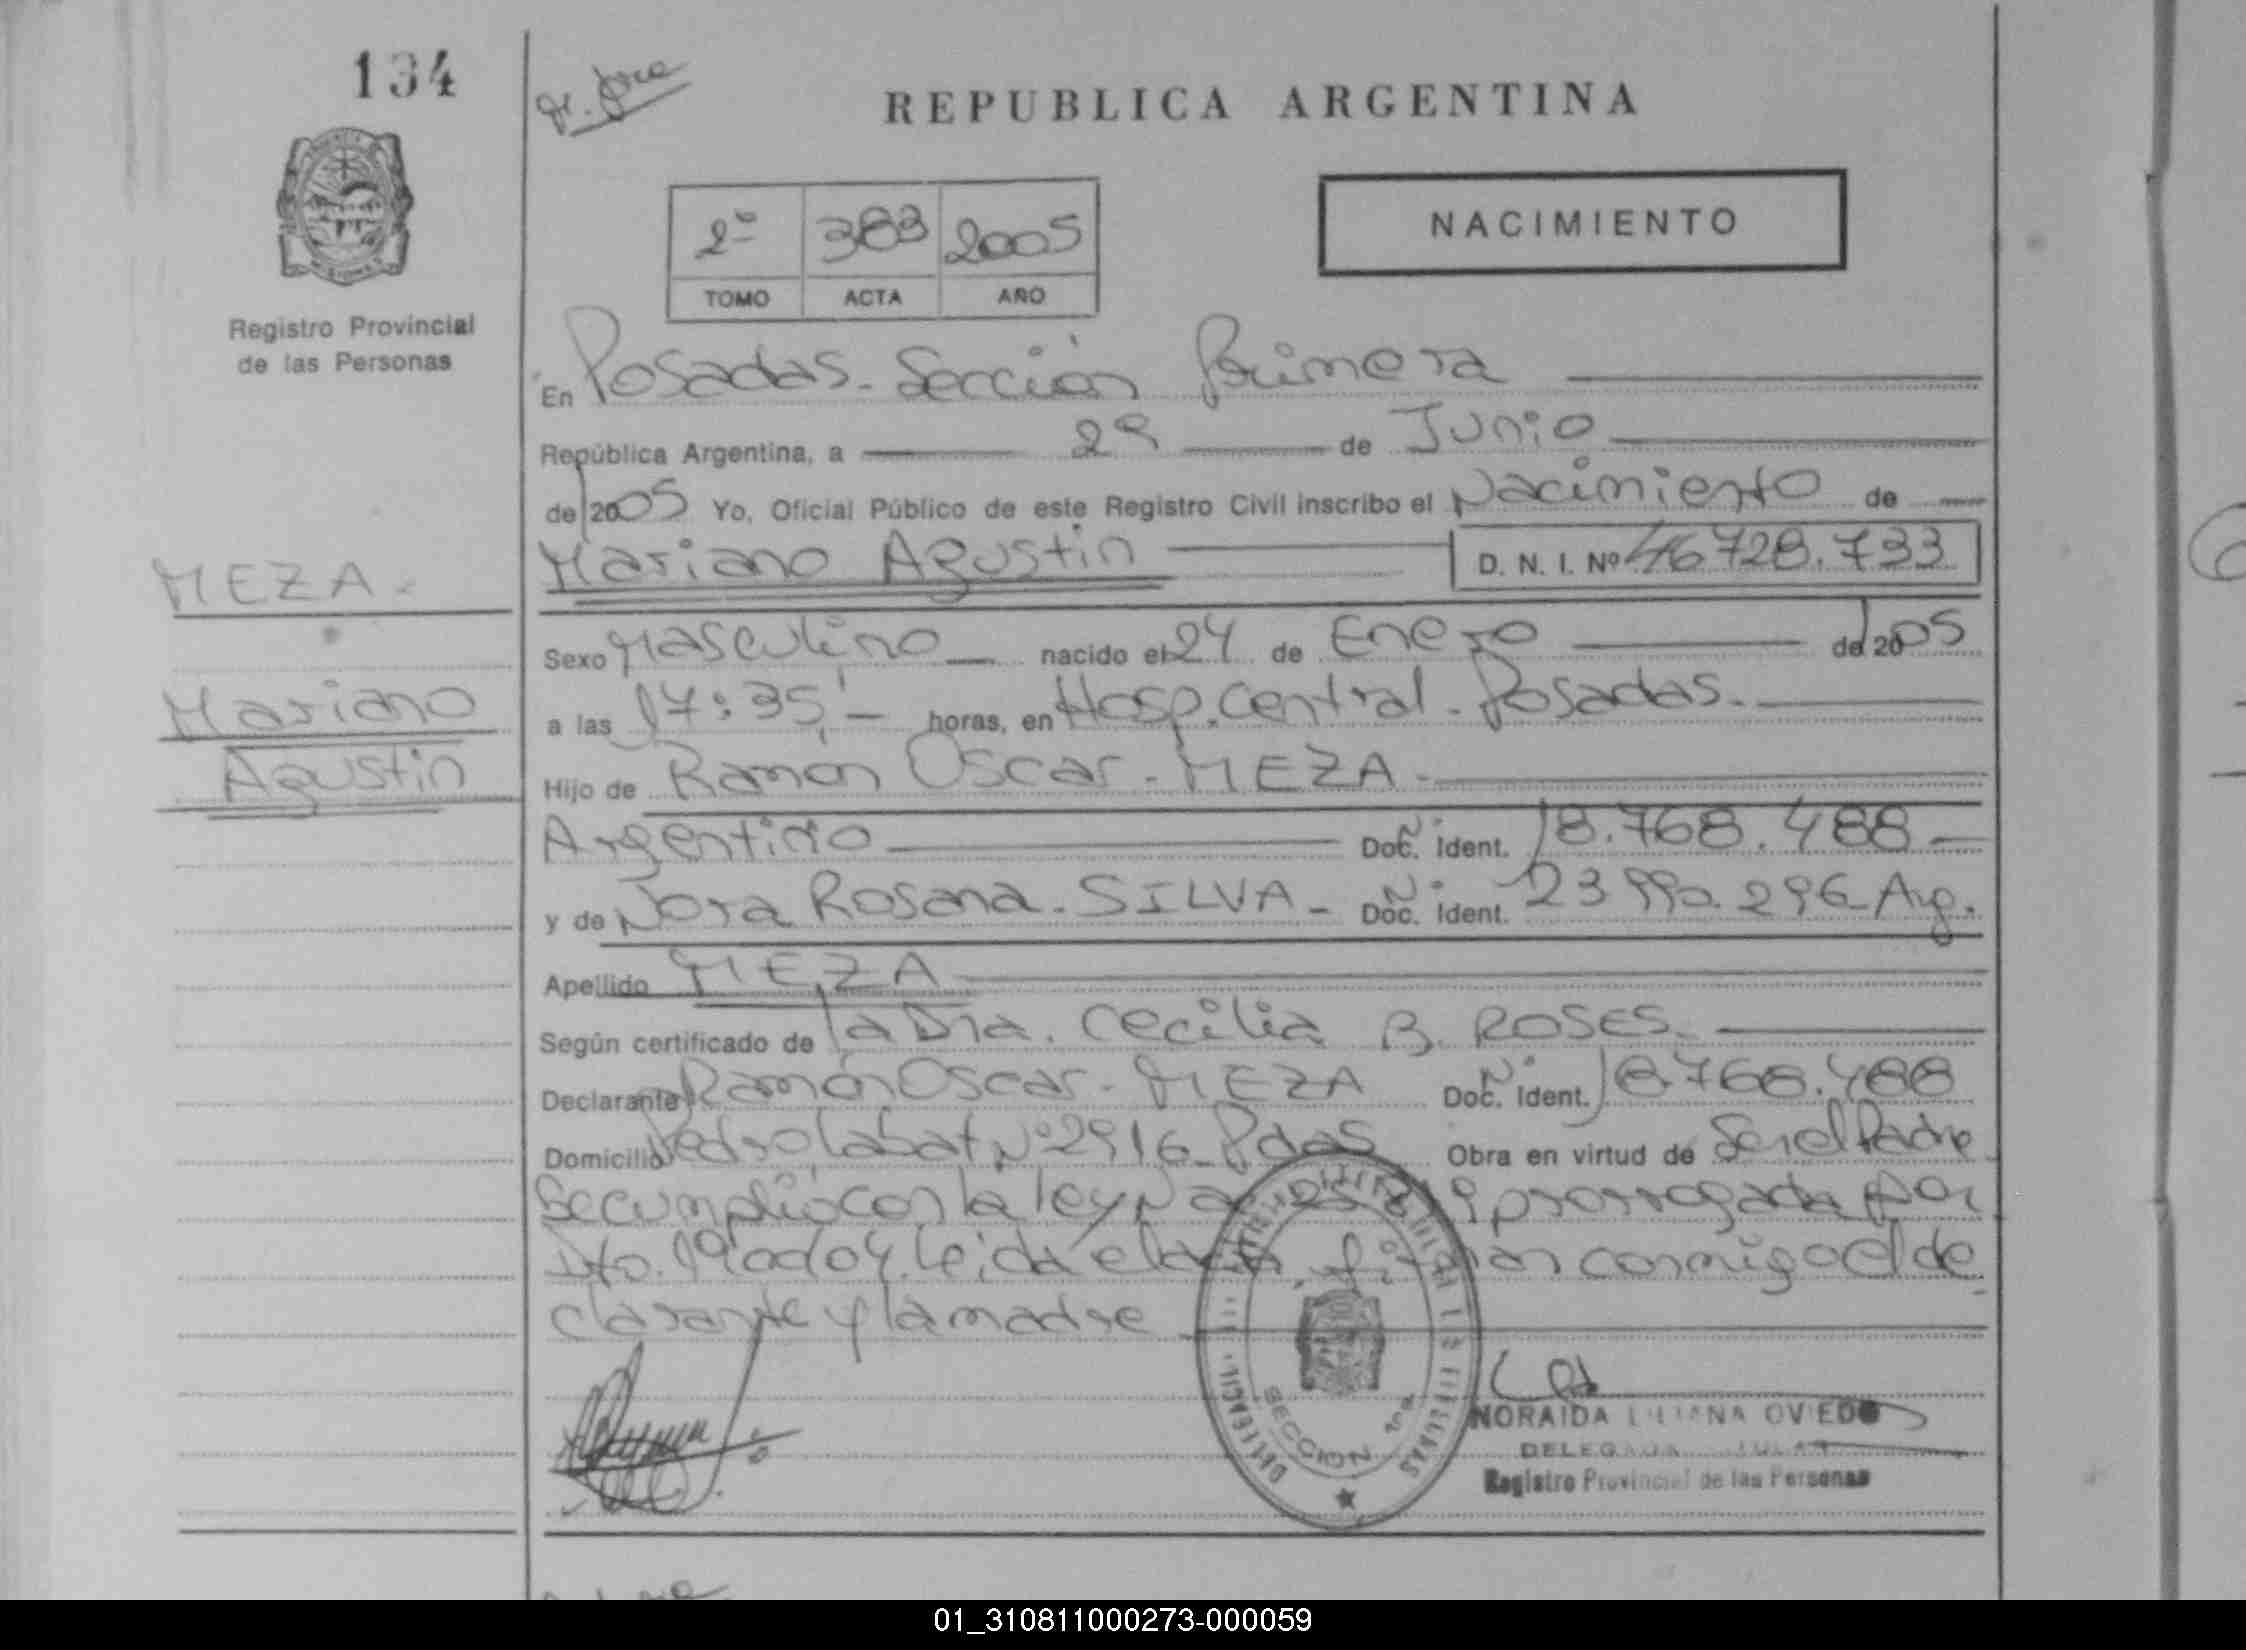 134
REPUBLICA ARGENTINA
NACIMIENTO
2º 383 2005
TOMO ACTA AÑO
Registro Provincial
de las Personas
En Posadas. Sección Primera
República Argentina, a 29 de Junio
de 2005 Yo, Oficial Público de este Registro Civil inscribo el Nacimiento de
Mariano Agustin D. N. I. Nº 46728.733
MEZA
Mariano
Agustin
Sexo Masculino nacido el 24 de Enero de 2005
a las 17:35 horas, en Hosp. Central. Posadas.
Hijo de Ramón Oscar. MEZA.
Argentino Doc. Nº Ident. 18.768.488
y de Nora Rosana. SILVA Doc. Nº Ident. 23 990.296 Arg.
Apellido MEZA
Según certificado de la Dra. Cecilia B. ROSES.
Declarante Ramón Oscar. MEZA Doc. Nº Ident. 18.768.488
Domicilio Pedro Labat Nº 2916 Pdas Obra en virtud de Ser el Padre
Se cumplió con la ley prorrogada por
Dto. Leida el acta, firman conmigo el de
clarante y la madre
SECCION 1ra
NORAIDA LILIANA OVIEDO
DELEGADA TITULAR
Registro Provincial de las Personas
01_310811000273-000059